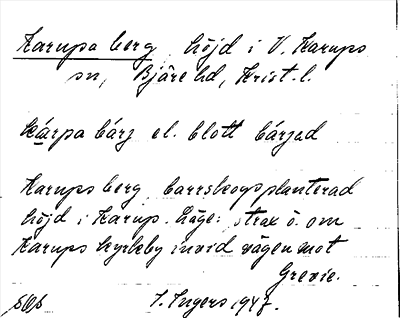 Karups berg, höjd i V. Karups
sn, Bjäre hd, Krist. l.
kárpa bárj el. blott bárjad
Karups berg, barrskogsplanterad
höjd i Karup. Läge: strax ö. om
Karups kyrkby invid vägen mot
Grevie.
I. Ingers 1947.